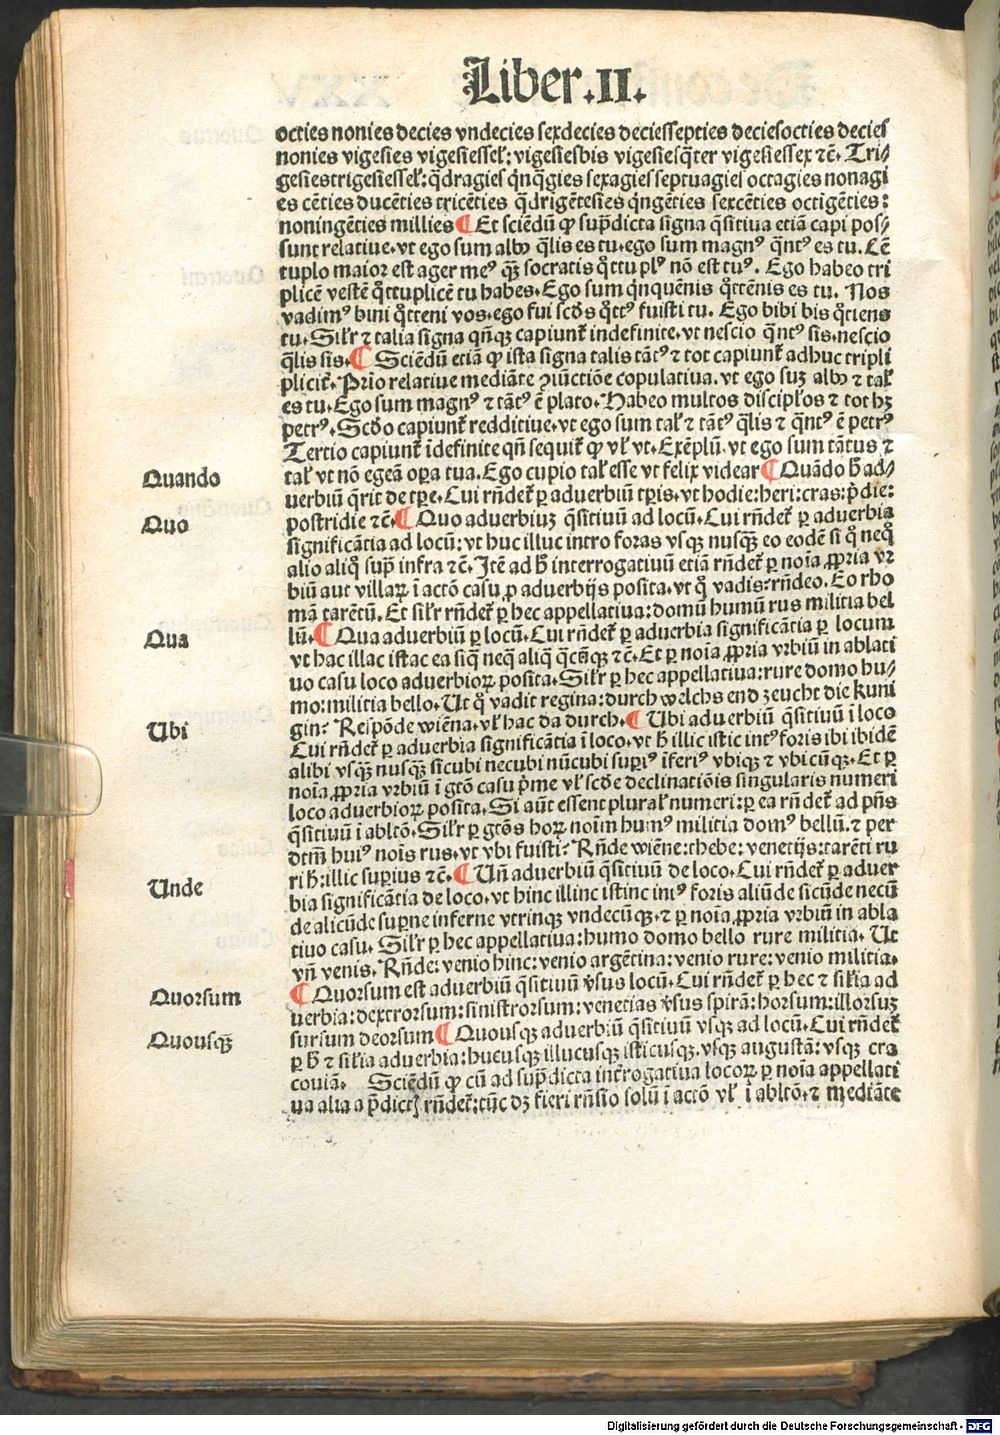 Liber.II.
octies nonies decies vndecies sexdecies deciessepties deciesocties decies
nonies vigesies vigesiessel̕: vigesiesbis vigesiesq̃ter vigesiessex ⁊c̃. Tri⸗
gesiestrigesiessel̕: q̃dragies q̃nq̃gies sexagies septuagies octagies nonagi
es cẽties ducẽties tricẽties q̃drigẽtesies q̃ngẽties sexcẽties octigẽties:
noningẽties millies ¶ Et sciẽdũ ꝙ sup̃dicta signa q̃sitiua etiã capi pos⸗
sunt relatiue. vt ego sum alb q̃lis es tu. ego sum magnꝰ q̃ntꝰ es tu. Cẽ
tuplo maior est ager meꝰ q̃ʒ socratis q̃ttuplꝰ nõ est tuꝰ. Ego habeo tri
plicẽ vestẽ q̃ttuplicẽ tu habes. Ego sum q̃nquẽnis q̃ttẽnis es tu. Nos
vadimꝰ bini q̃tteni vos. ego fui scd̕s q̃ttꝰ fuisti tu. Ego bibi bis q̃tiens
tu. Sil̕r ⁊ talia signa qñqʒ capiunt̕ indefinite. vt nescio q̃ntꝰ sis. nescio
q̃lis sis. ¶ Sciẽdũ etiã ꝙ ista signa talis tãtꝰ ⁊ tot capiunt̕ adhuc tripli
plicit̕. Prĩo relatiue mediãte ꝯiũctiõe copulatiua. vt ego suʒ alb ⁊ tal̕
es tu. Ego sum magnꝰ ⁊ tãtꝰ ẽ plato. Habeo multos discipl̕os ⁊ tot hʒ
petrꝰ. Scd̕o capiunt̕ redditiue. vt ego sum tal̕ ⁊ tãtꝰ q̃lis ⁊ q̃ntꝰ ẽ petrꝰ
Tertio capiunt̕ ĩdefinite qñ sequit̕ ꝙ vl̕ vt. Exẽplũ. vt ego sum tãtus ⁊
tal̕ vt nõ egeã oꝑa tua. Ego cupio tal̕ esse vt felix videar ¶ Quãdo h̃ ad⸗
uerbiũ q̃rit de tꝑe. Cui rñdet̕ ꝑ aduerbiũ tꝑis. vt hodie: heri: cras: p̃die:
postridie ⁊c̃. ¶ Quo aduerbiuʒ q̃sitiuũ ad locũ. Cui rñdet̕ ꝑ aduerbia
significãtia ad locũ: vt huc illuc intro foras vsqʒ nusq̃ʒ eo eodẽ si q̊ neq̊
alio aliq̊ sup̃ infra ⁊c̃. Itẽ ad h̃ interrogatiuũ etiã rñdet̕ ꝑ noĩa ꝓpria vr
biũ aut villaꝝ ĩ actõ casu ꝓ aduerbijs posita. vt q̊ vadis? rñdeo. Eo rho
mã tarẽtũ. Et sil̕r rñdet̕ ꝑ hec appellatiua: domũ humũ rus militia bel
lũ. ¶ Qua aduerbiũ ꝑ locũ. Cui rñdet̕ ꝑ aduerbia significãtia ꝑ locum
vt hac illac istac ea siq̃ neq̃ aliq̃ q̃cũqʒ ⁊c̃. Et ꝑ noĩa ꝓpria vrbiũ in ablati
uo casu loco aduerbioꝝ posita. Sil̕r ꝑ hec appellatiua: rure domo hu⸗
mo: militia bello. Ut q̊ vadit regina: durch welchs end zeucht die kuni
gin? Respõde wiẽna. vl̕ hac da durch. ¶ Ubi aduerbiũ q̃sitiuũ ĩ loco
Cui rñdet̕ ꝑ aduerbia significãtia ĩ loco. vt h̃ illic istic intꝰ foris ibi ibidẽ
alibi vsq̃ʒ nusq̃ʒ sicubi necubi nũcubi suꝑiꝰ ĩferiꝰ vbiqʒ ⁊ vbicũqʒ. Et ꝑ
noĩa ꝓpria vrbiũ ĩ gtõ casu p̃me vl̕ scd̕e declinatiõis singularis numeri
loco aduerbioꝝ posita. Si aũt essent plural̕ numeri: ꝑ ea rñdet̕ ad p̃ñs
q̃sitiuũ ĩ abltõ. Sil̕r ꝑ gtõs hoꝝ noĩm humꝰ militia domꝰ bellũ. ⁊ per
dtm̃ huiꝰ noĩs rus. vt vbi fuisti? Rñde wiẽne: thebe: venetijs: tarẽti ru
ri h̃: illic suꝑius ⁊c̃. ¶ Uñ aduerbiũ q̃sitiuũ de loco. Cui rñdet̕ ꝑ aduer
bia significãtia de loco. vt hinc illinc istinc intꝰ foris aliũde sicũde necũ
de alicũde suꝑne inferne vtrinqʒ vndecũqʒ. ⁊ ꝑ noĩa ꝓpria vrbiũ in abla
tiuo casu. Sil̕r ꝑ hec appellatiua: humo domo bello rure militia. Ut
vñ venis. Rñde: venio hinc: venio argẽtina: venio rure: venio militia.
¶ Quorsum est aduerbiũ q̃sitiuũ v̕sus locũ. Cui rñdet̕ ꝑ hec ⁊ sil̕ia ad
uerbia: dextrorsum: sinistrorsum: venetias v̕sus spirã: horsum: illorsuʒ
sursum deorsum ¶ Quousqʒ aduerbiũ q̃sitiuũ vsqʒ ad locũ. Cui rñdet̕
ꝑ h̃ ⁊ sil̕ia aduerbia: hucusqʒ illucusqʒ isticusqʒ. vsqʒ augustã: vsqʒ cra
couiã. Sciẽdũ ꝙ cũ ad sup̃dicta int̕rogatiua locoꝝ ꝑ noĩa appellati
ua alia a p̃dictʃ rñdet̕: tũc dʒ fieri rñsio solũ ĩ actõ vl̕ ĩ abltõ. ⁊ mediãte
Quando
Quo
Qua
Ubi
Unde
Quorsum
Quousq̃ʒ
Digitalisierung gefördert durch die Deutsche Forschungsgemeinschaft - DFG